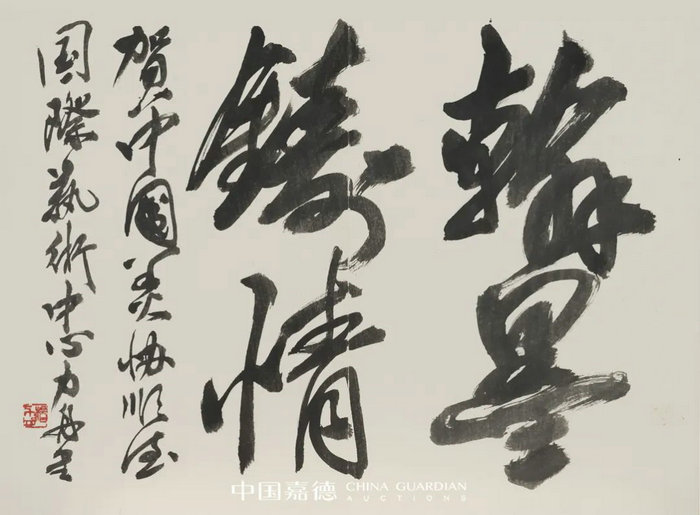 翰墨
鑄情
賀中國美协順德
国際藝術中心力舟書
中国嘉德 CHINA GUARDIAN
AUCTIONS